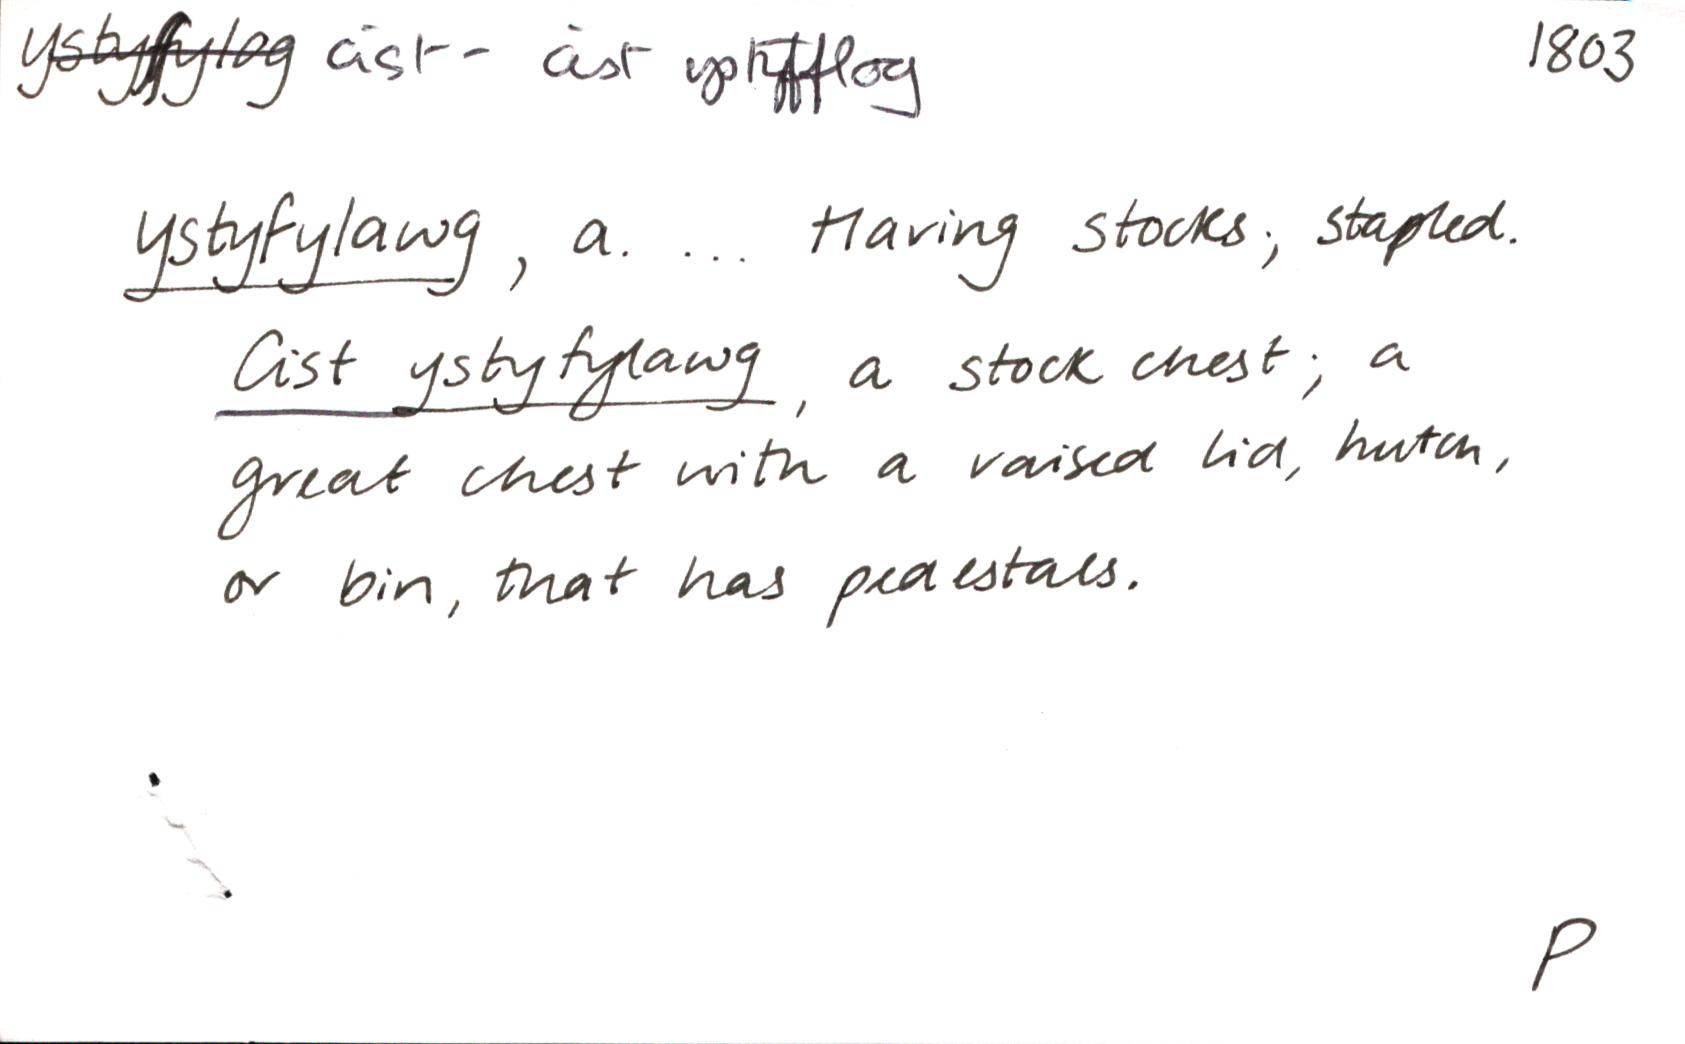 ystyffylog cist - cist ystyfflog 1803
ystyfylawg, a. ... Having stocks; stapled.
Cist ystyfylawg, a stock chest; a
great chest with a raised lid, hutch,
or bin, that has pedestals.
P